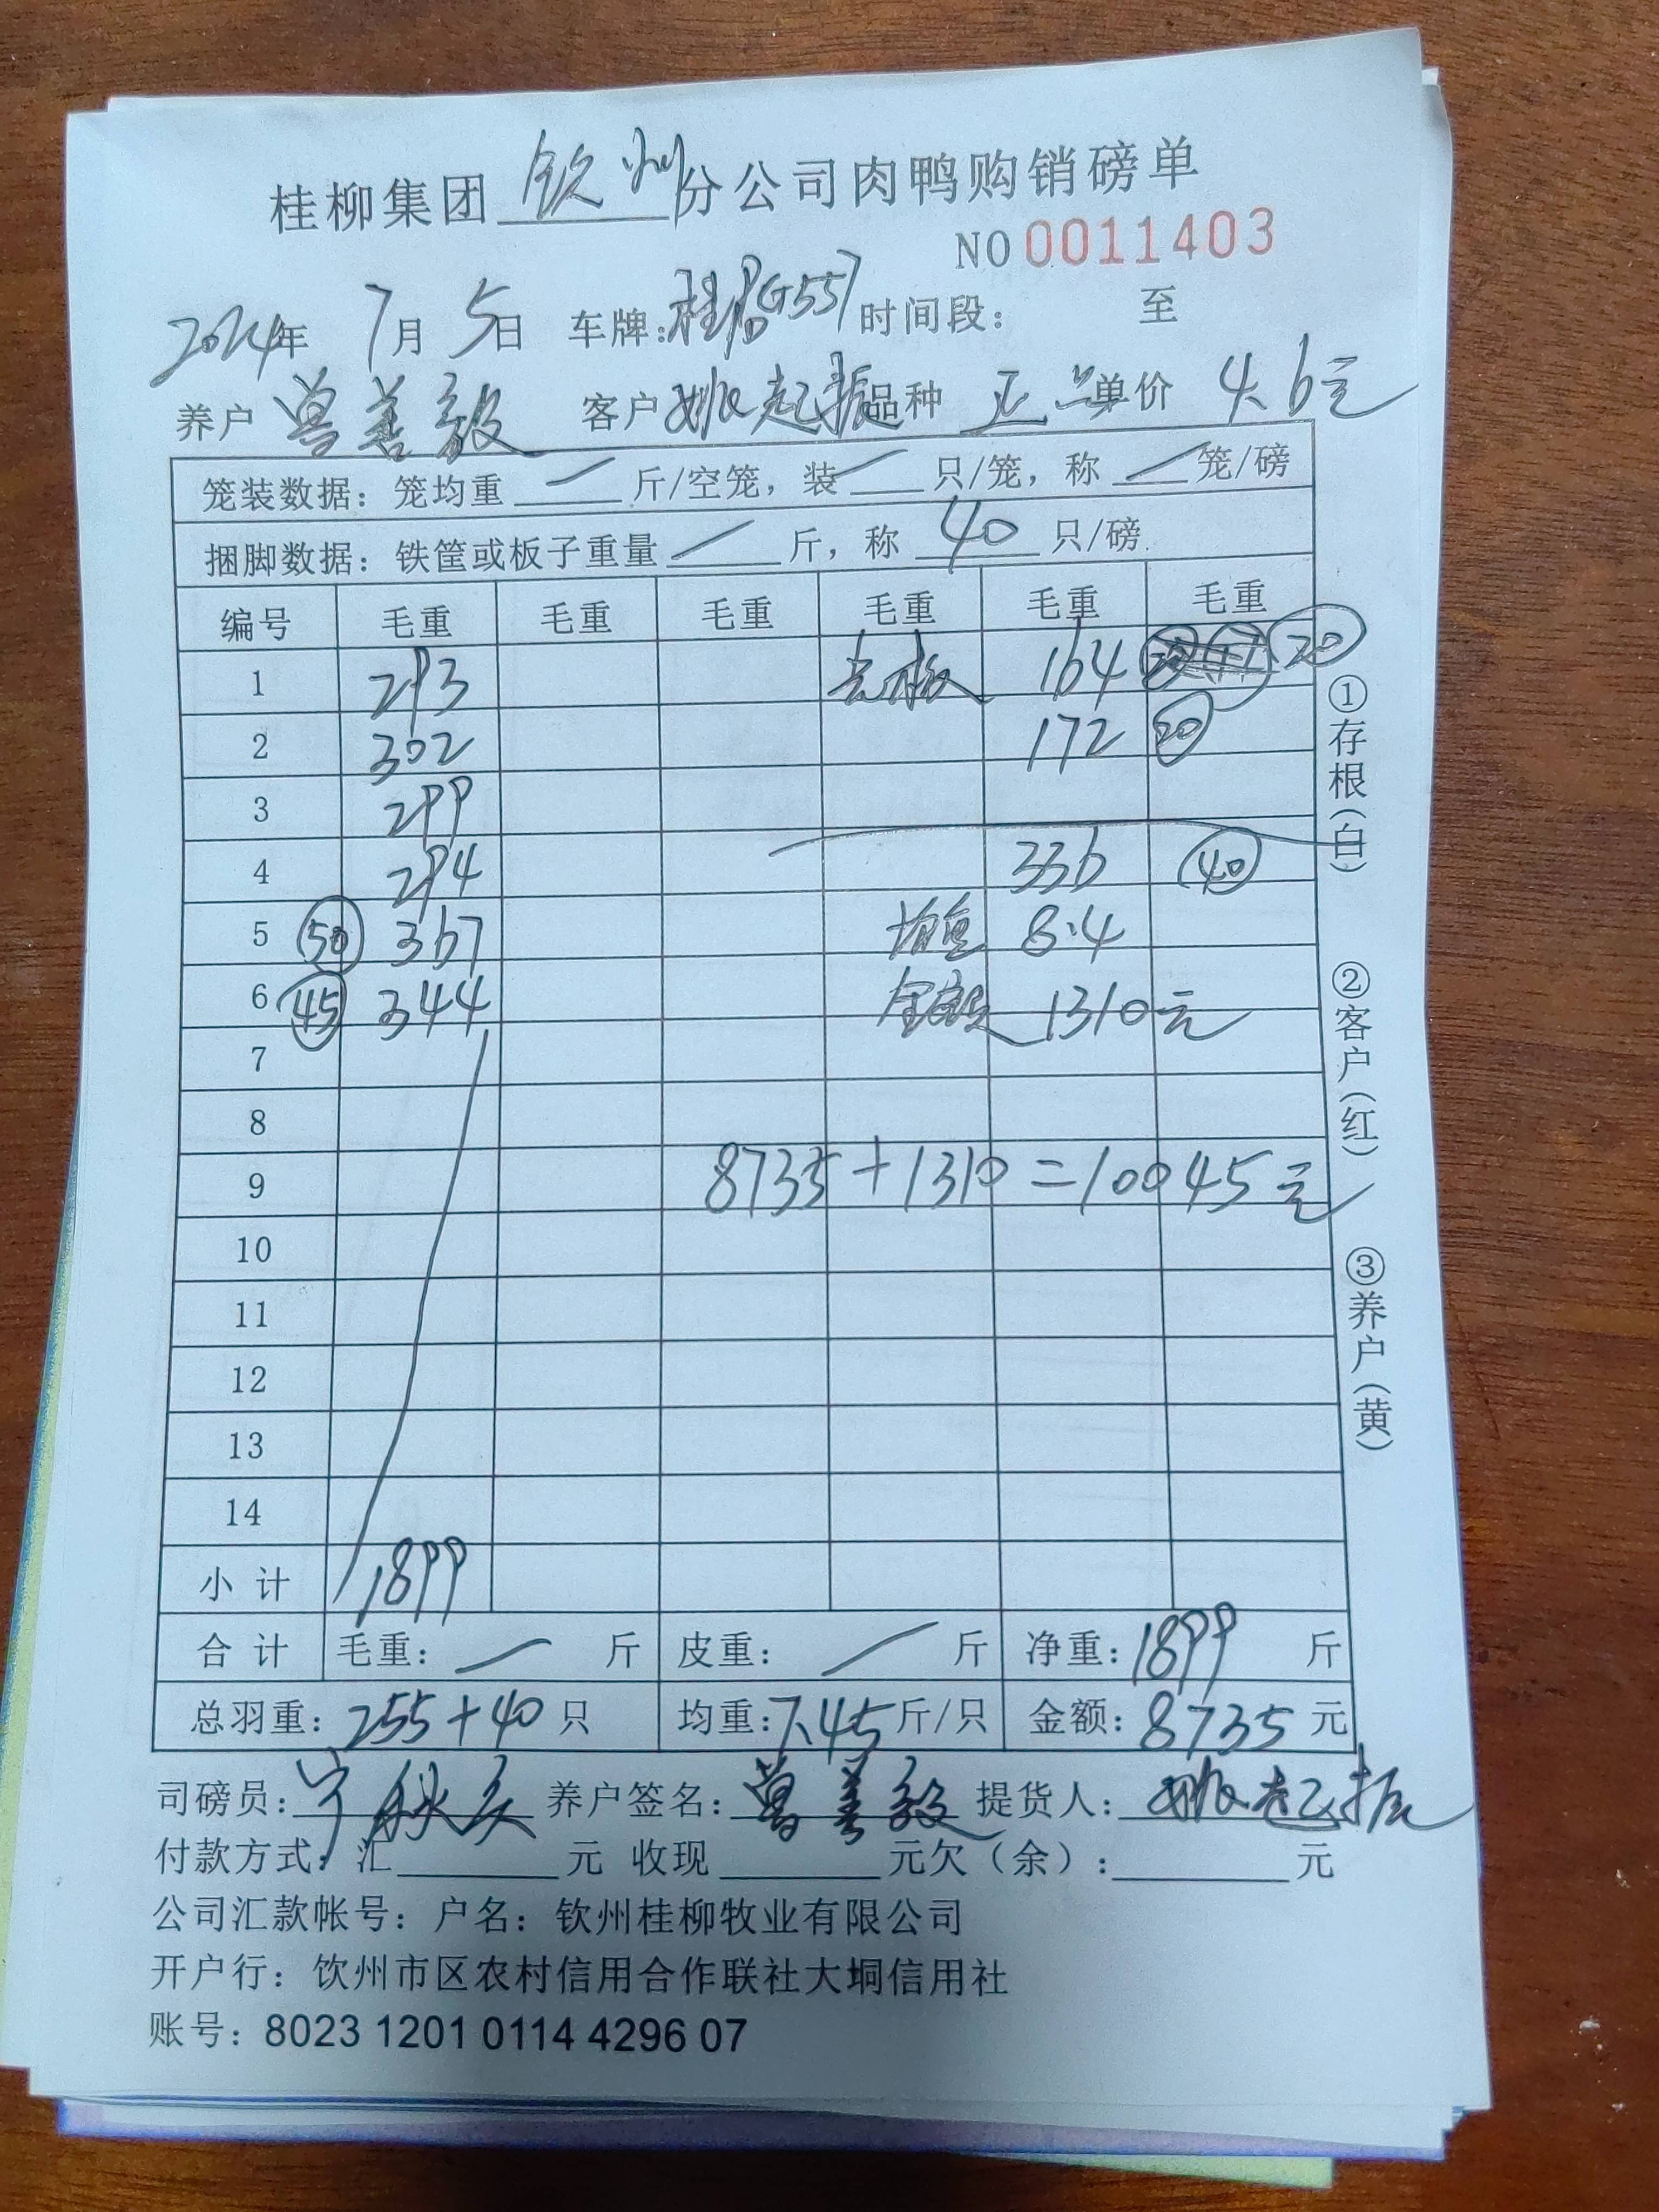 桂柳集团 钦州 分公司肉鸭购销磅单
NO 0011403
2024年 7月 5日 车牌: 桂 G557 时间段: 至
养户 曾善毅 客户 姚起振 品种 正 单价 4.6元
笼装数据: 笼均重 / 斤/空笼, 装 / 只/笼, 称 / 笼/磅
捆脚数据: 铁筐或板子重量 / 斤, 称 40 只/磅.
编号 毛重 毛重 毛重 毛重 毛重 毛重
1 293 老板 164 20
2 302 172 20
3 299
4 294 336 40
5 50 367 均重 8.4
6 45 344 金额 1310元
7
8
9 8735+1310=10045元
10
11
12
13
14
小计 1899
合计 毛重: / 斤 皮重: / 斤 净重: 1899 斤
总羽重: 255+40 只 均重: 7.45 斤/只 金额: 8735 元
司磅员: 宁秋 养户签名: 曾善毅 提货人: 姚起振
付款方式: 汇 元 收现 元欠(余): 元
公司汇款帐号: 户名: 钦州桂柳牧业有限公司
开户行: 饮州市区农村信用合作联社大垌信用社
账号: 8023 1201 0114 4296 07
①存根(白)
②客户(红)
③养户(黄)